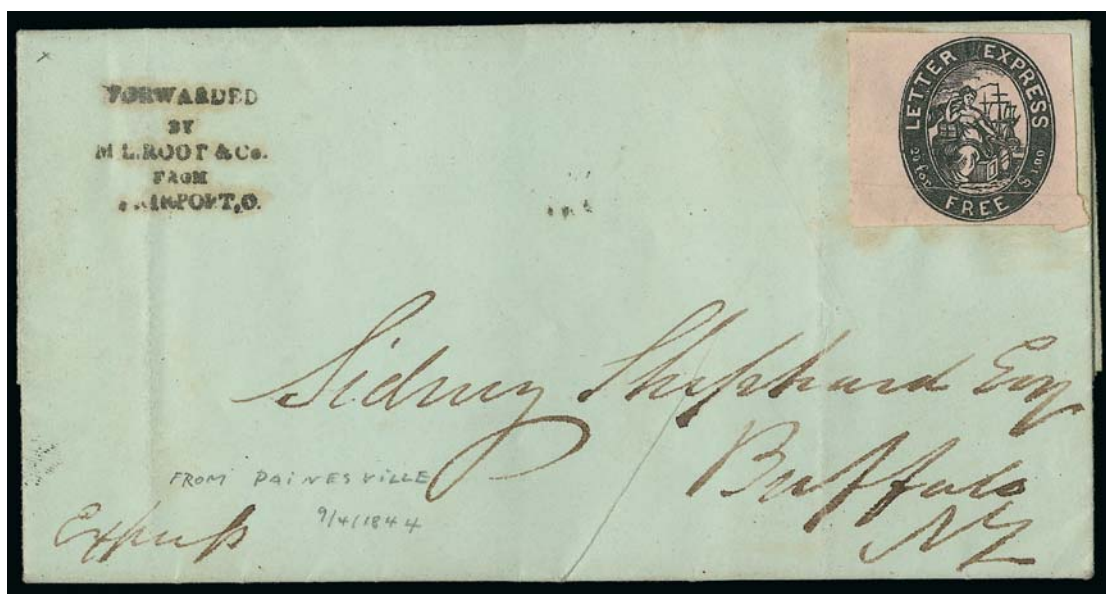 FORWARDED
BY
M. L. ROOT & Co.
FROM
FAIRPORT, O.
LETTER EXPRESS
20 for $1.00
FREE
Sidney Shephard Esq
Buffalo
NY
FROM PAINESVILLE
9/4/1844
Express